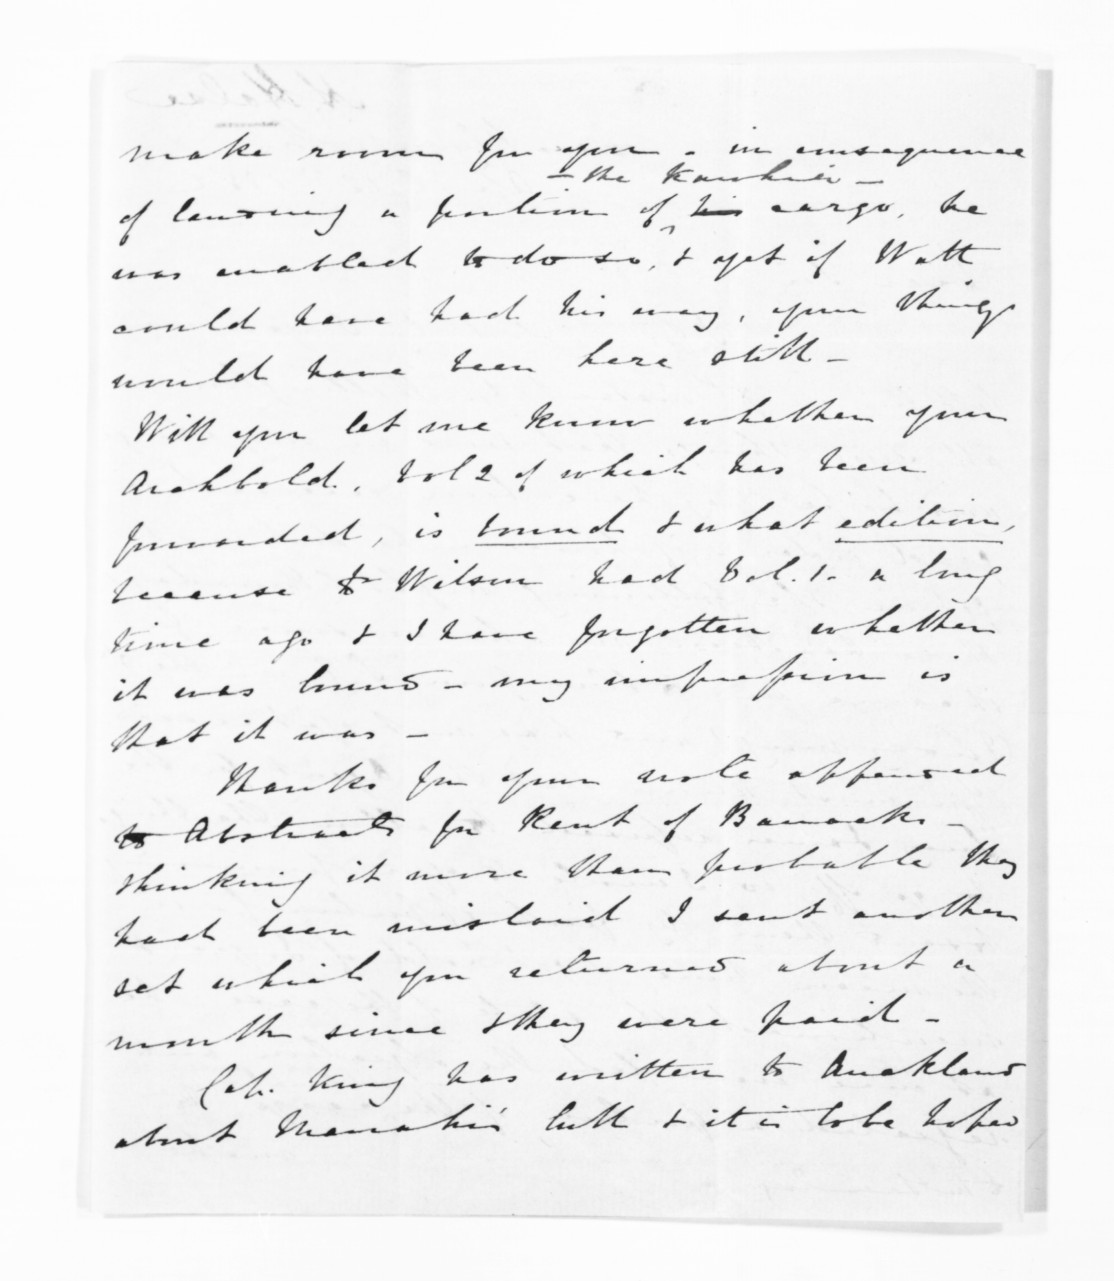 make room for you - in consequence
- the Kawhia -
of landing a portion of his cargo, he
was enabled to do so, & yet if Watt
could have had his way, your things
would have been here still -
Will you let me know whether your
Archbold, Vol 2 of which has been
forwarded, is bound & what edition,
because Dr Wilson had Vol. 1. a long
time ago & I have forgotten whether
it was bound - my impression is
that it was -
Thanks for your note appended
to Abstracts for Rent of Barracks -
thinking it more than probable they
had been mislaid I sent another
set which you returned about a
month since & they were paid -
Cap. King has written to Auckland
about Manahi's bull & it is to be hoped